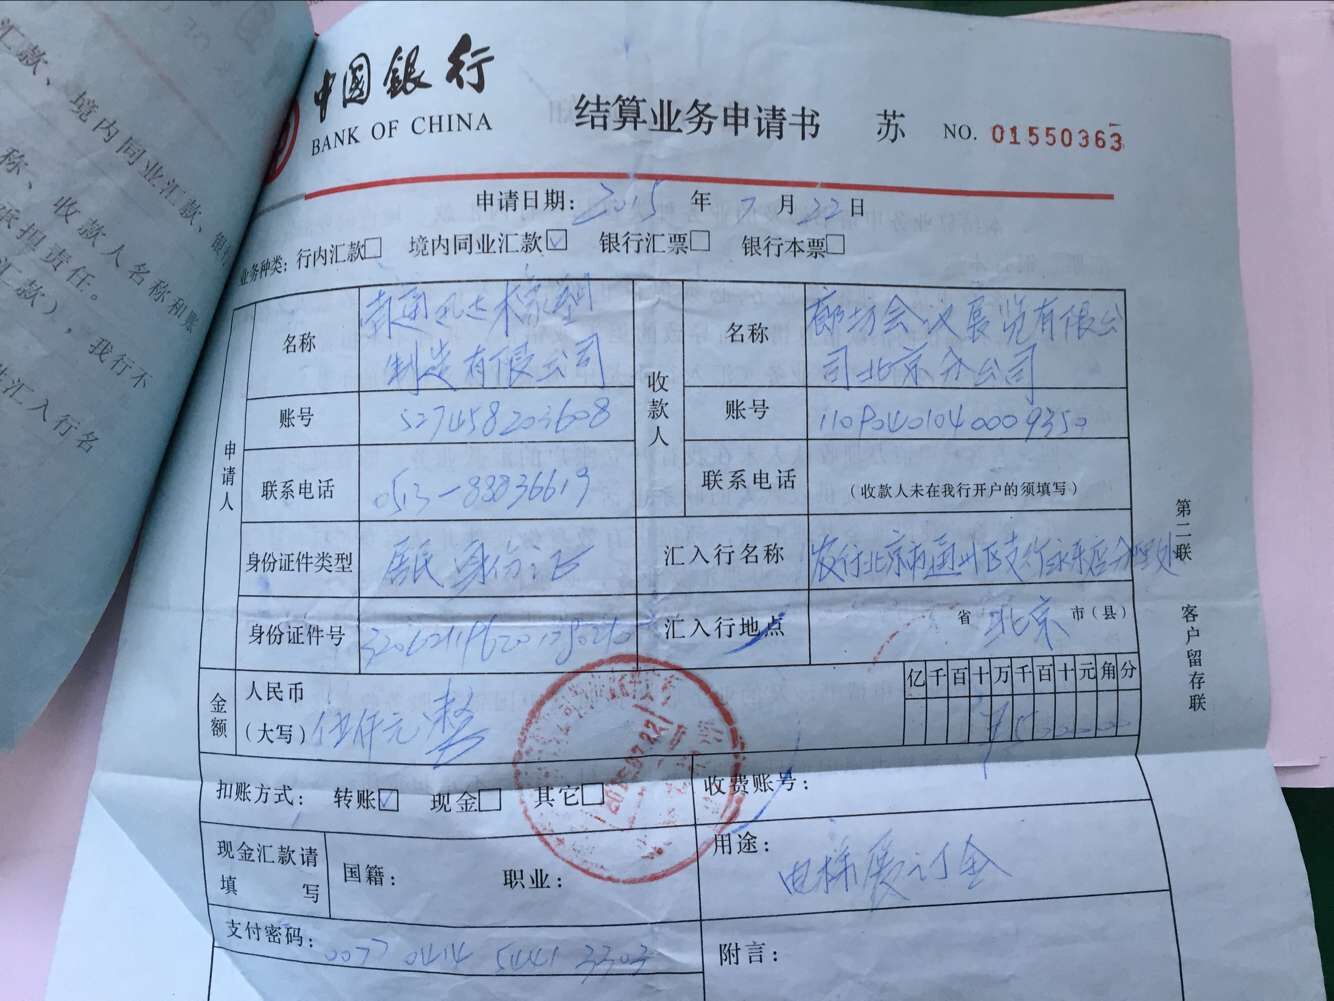 汇款、境内同业汇款、银行
称、收款人名称和账
承担责任。
汇款），我行不
汇入行名
中國銀行
BANK OF CHINA
结算业务申请书 苏 NO. 01550363
申请日期: 2015 年 7 月 22 日
业务种类: 行内汇款 境内同业汇款 银行汇票 银行本票
申请人
名称
制造有限公司
收款人
名称
廊坊会议展览有限公
司北京分公司
账号 527458203608
账号
联系电话 0513-88836619
联系电话 (收款人未在我行开户的须填写)
身份证件类型 居民身份证
汇入行名称
身份证件号
汇入行地点 省 北京 市(县)
金额
人民币
(大写) 伍仟元整
亿千百十万千百十元角分
¥500000
扣账方式: 转账 现金 其它
收费账号:
2015.07.22
现金汇款请
填写
国籍: 职业:
用途:
电梯展订金
支付密码: 0077 0414 5441 3303
附言:
第二联 客户留存联